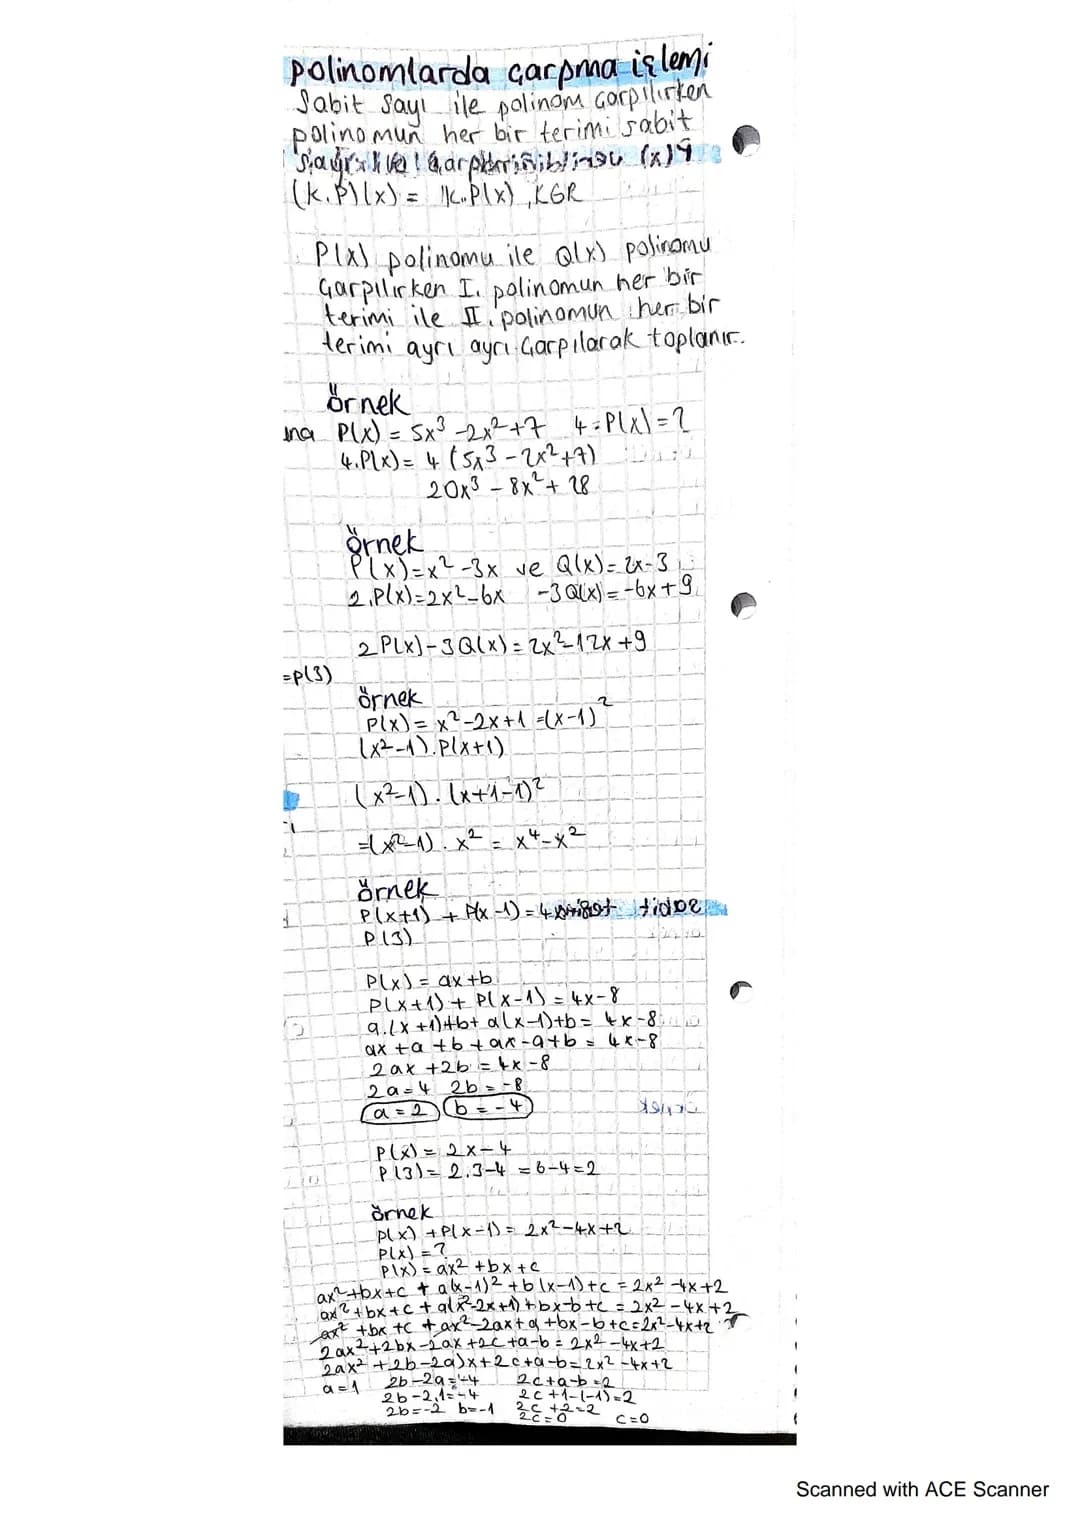 polinomlarda çarpma işlemi
Sabit sayı ile polinom çarpılırken
polinomun her bir terimi sabit
(k.P)(x) = k.P(x), KGR
P(x) polinomu ile Q(x) polinomu
Çarpılırken I. polinomun her bir
terimi ile II. polinomun her bir
terimi ayrı ayrı Çarpılarak toplanır.
örnek
ına P(x) = 5x³ -2x²+7 4.P(x)=?
4.P(x)= 4 (5x³ - 2x²+7)
20x³ - 8x² + 28
örnek
P(x)=x² -3x ve Q(x)= 2x-3
2.P(x)=2x²-6x -3Q(x)= -6x+9
2P(x)-3Q(x)= 2x²-12x +9
=p(3)
örnek
P(x)= x²-2x+1 =(x-1)²
(x²-1).P(x+1)
(x²-1).(x+1-1)²
=(x²-1).x² = x⁴-x²
örnek
P(x+1) + P(x-1) = 4x
P(3)
P(x) = ax+b
P(x+1) + P(x-1) = 4x-8
a.(x+1)+b+ a(x-1)+b= 4x-8
ax +a +b + ax -a+b = 4x-8
2ax +2b = 4x-8
2a=4 2b=-8
a=2 b=-4
P(x)= 2x-4
P(3)= 2.3-4 =6-4=2
örnek
P(x) +P(x-1)= 2x²-4x+2
P(x)=?
P(x)= ax² +bx+c
ax²+bx+c + a(x-1)² +b(x-1)+c = 2x² -4x+2
ax²+bx+c + a(x²-2x+1)+bx-b+c = 2x² -4x+2
ax² +bx +c +ax²-2ax+a+bx-b+c=2x²-4x+2
2ax²+2bx-2ax+2c+a-b= 2x²-4x+2
2ax² +2b-2a)x+2c+a-b=2x²-4x+2
a=1 2b-2a=-4 2c+a-b=2
2b-2.1=-4 2c+1-(-1)=2
2b=-2 b=-1 2c+2=2
2c=0 c=0
Scanned with ACE Scanner